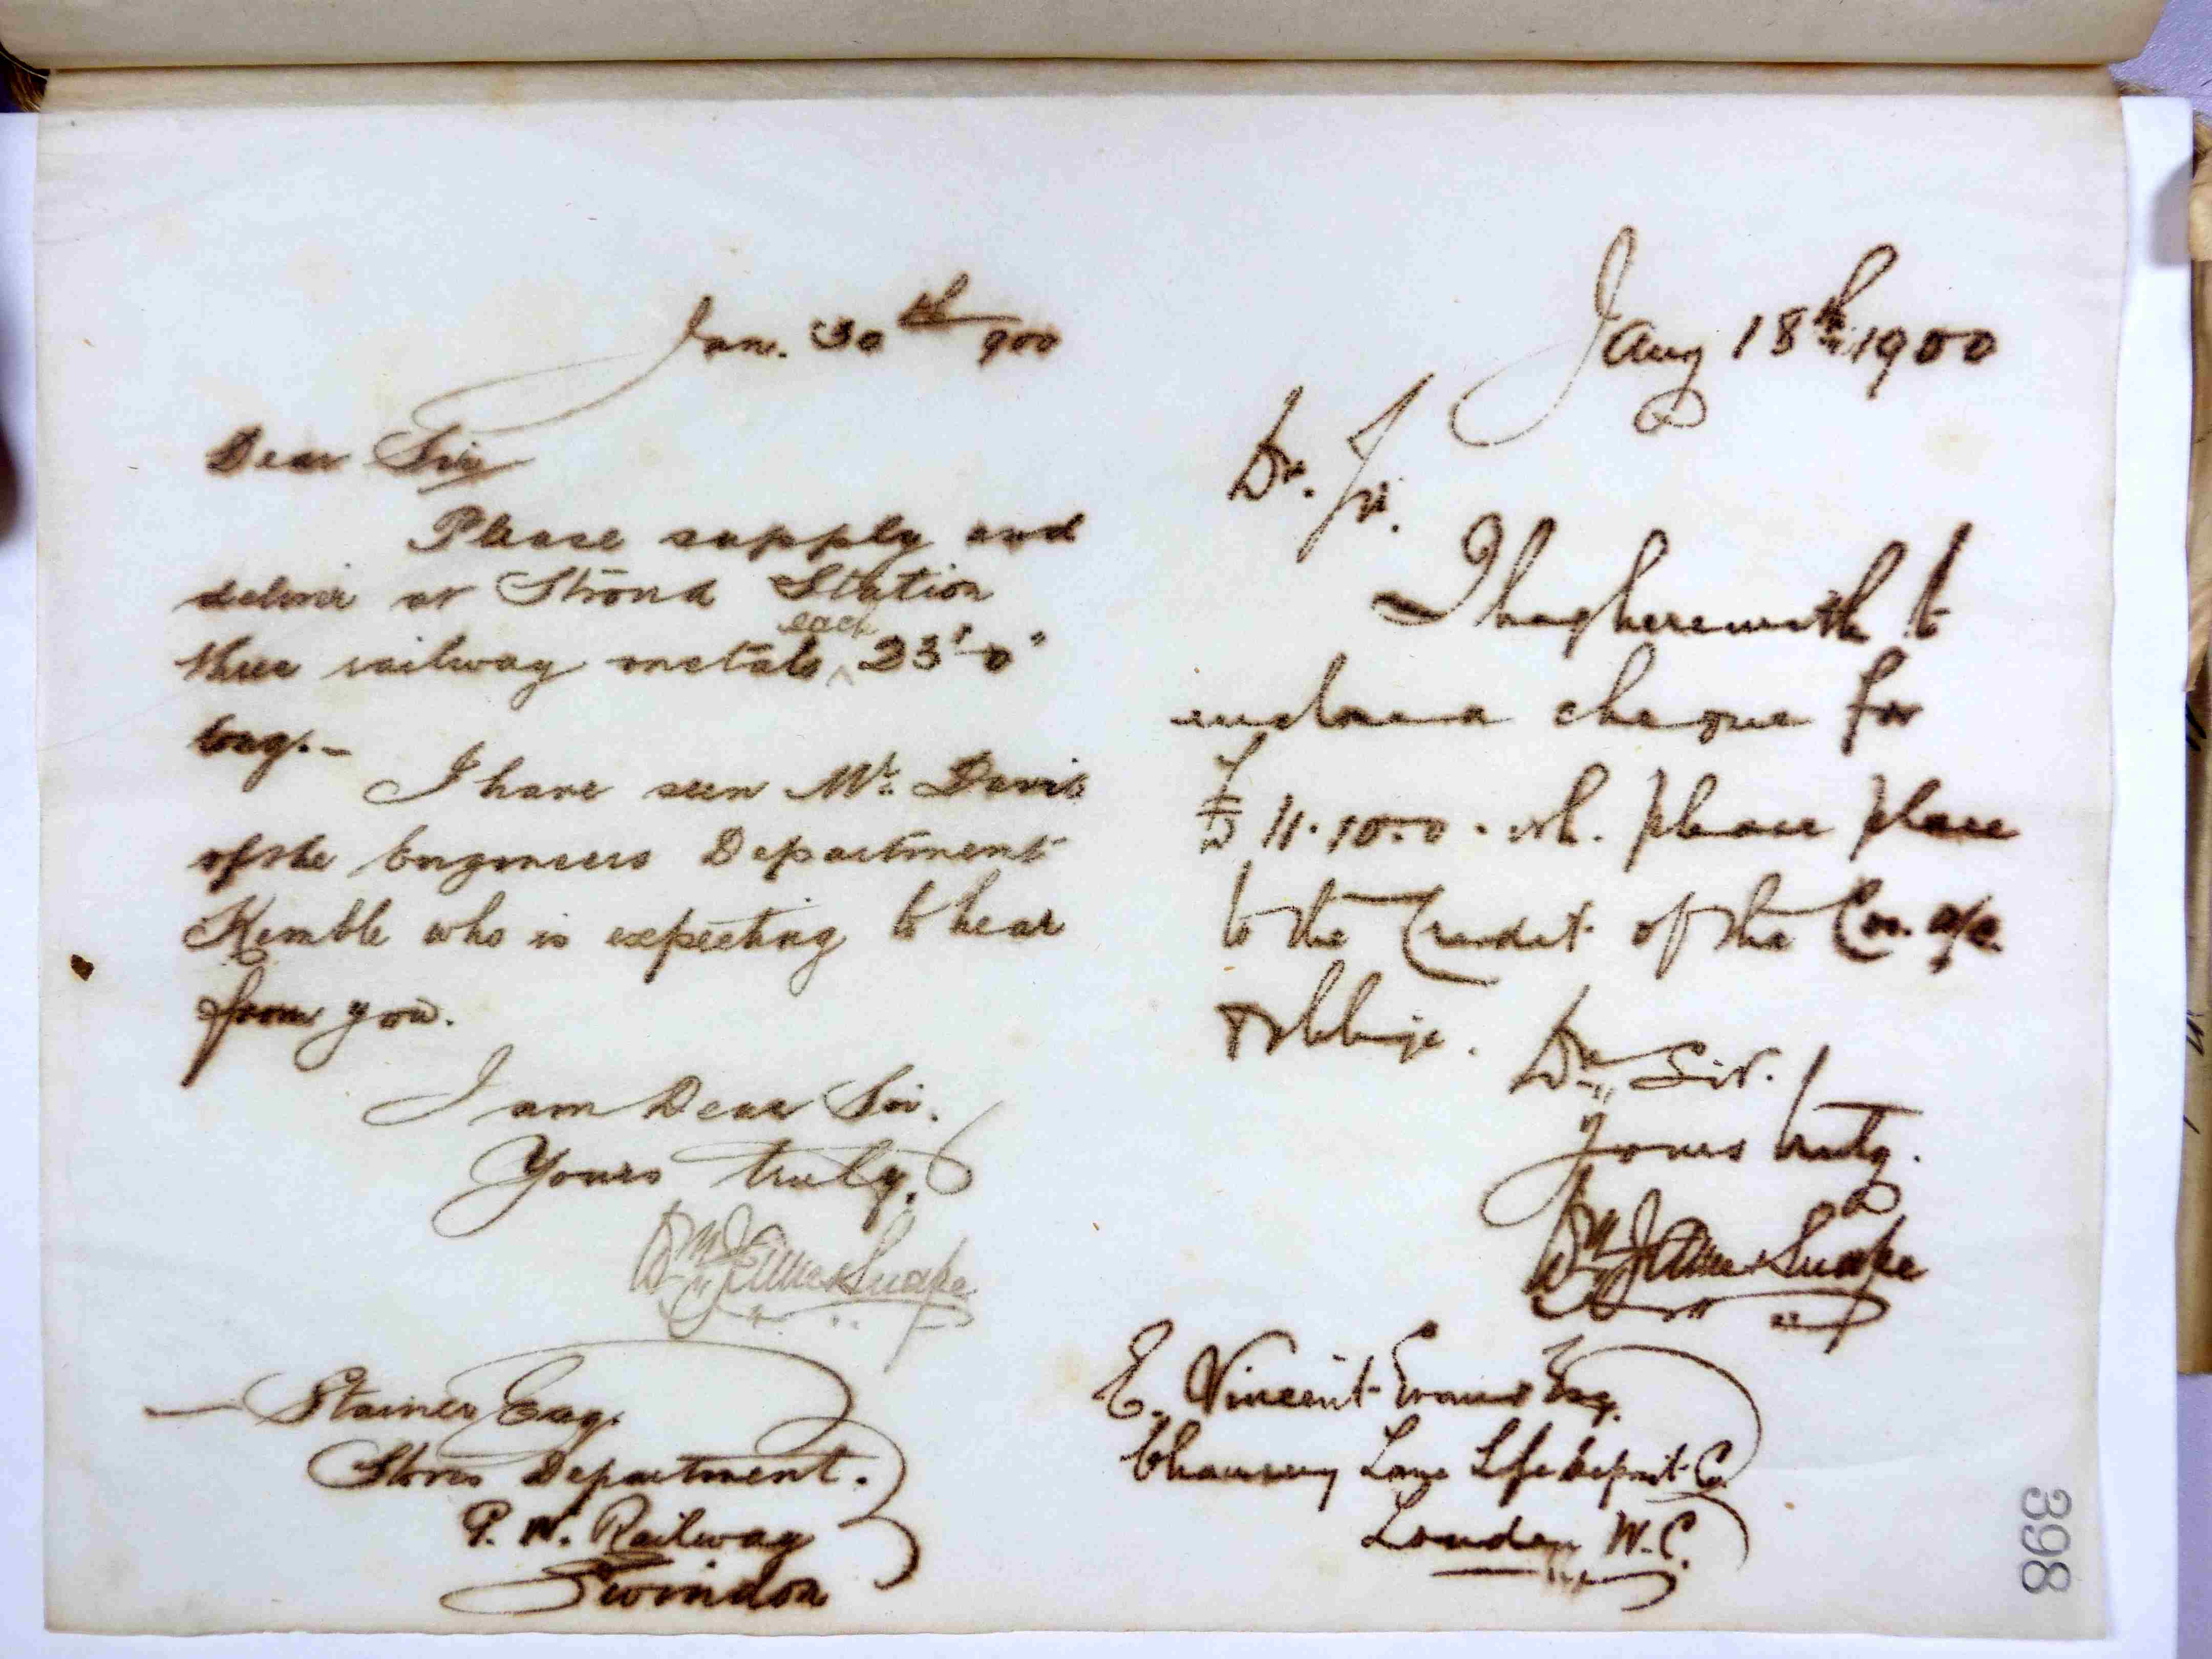 Jan. 30th 900
Dear Sir
Please supply and
deliver at Stroud Station
three railway metals ^each 23'-0"
long.-
I have seen Mr. Davis
of the Engineers Department
Kemble who is expecting to hear
from you.
I am Dear Sir.
Yours truly.
Wm James Snape
— Stainer Esq.
Stores Department.
G. W. Railway
Swindon
Jany 18th 1900
Dr. Sir.
I beg herewith to
enclose a cheque for
£11.10.0. wh. please place
to the Credit of the Con. a/c.
& oblige. Dr Sir.
Yours truly.
Wm James Snape
E. Vincent Evans Esq.
Chancery Lane Safe Deposit Co
London W.C.
398